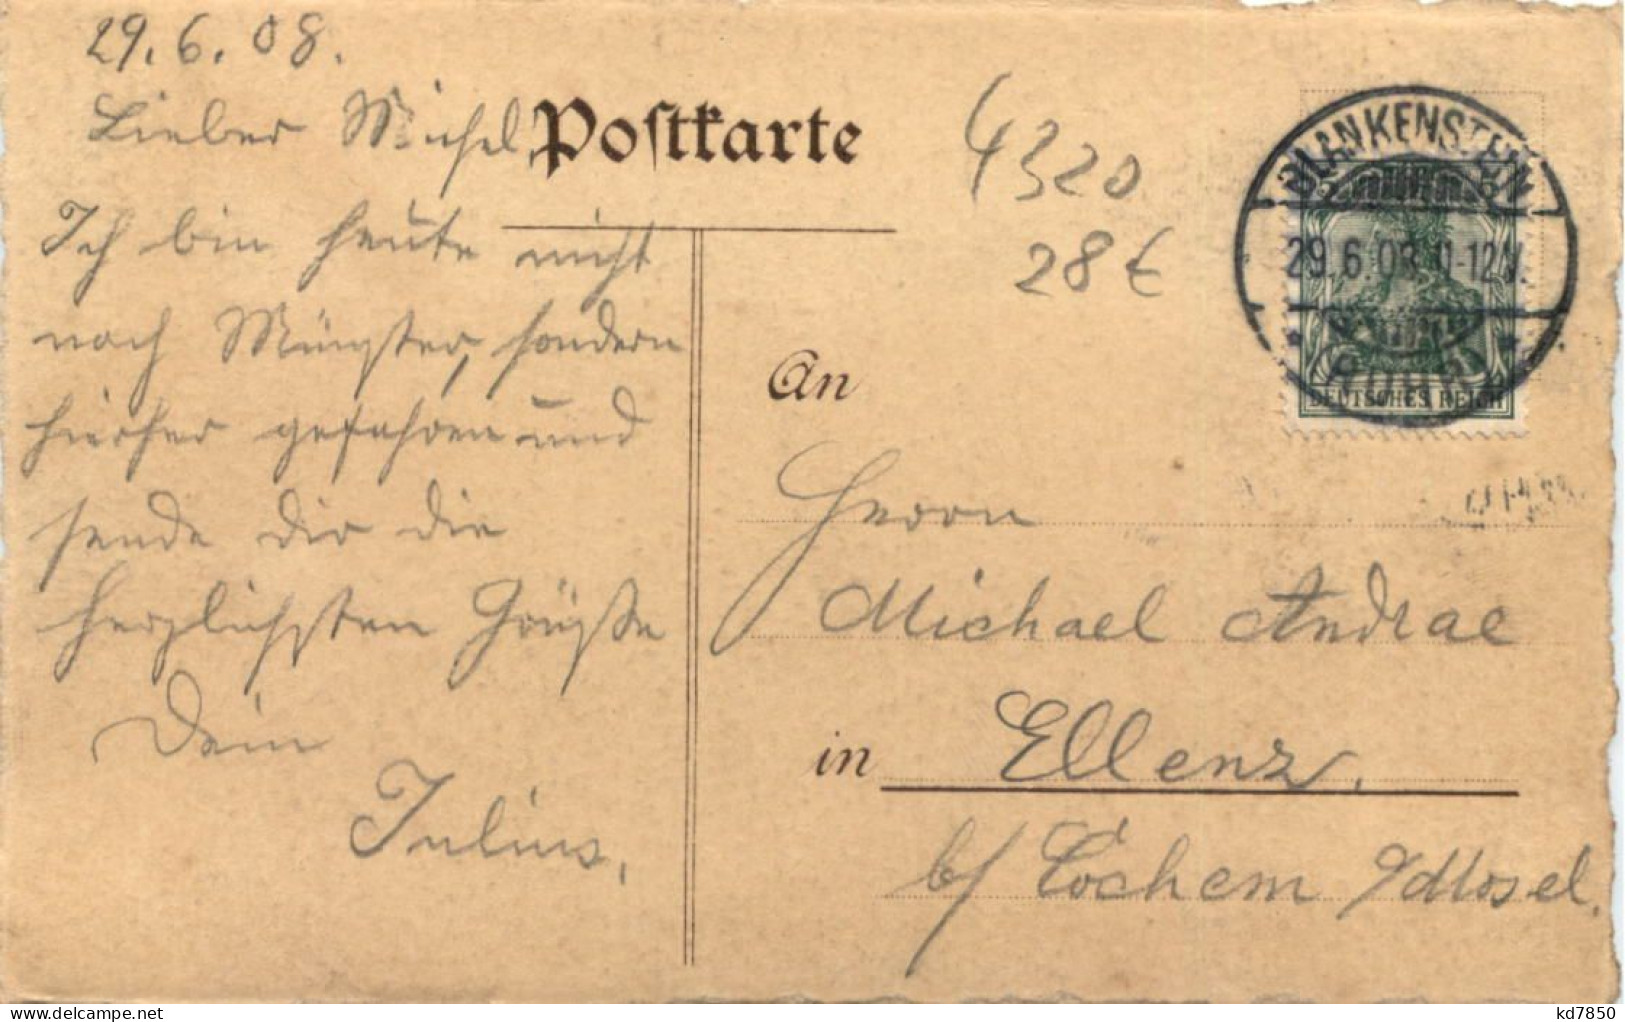 29.6.08.
Lieber Michel,
Ich bin heute nicht
nach Münster, sondern
hierher gefahren und
sende dir die
herzlichsten Grüße
Dein
Julius.
Postkarte
4320
28 €
BLANKENSTEIN
29.6.08.11-12V.
* (RUHR) *
DEUTSCHES REICH
An
Herrn
Michael Andrae
in Ellenz.
b/ Cochem a/Mosel.
kd7850